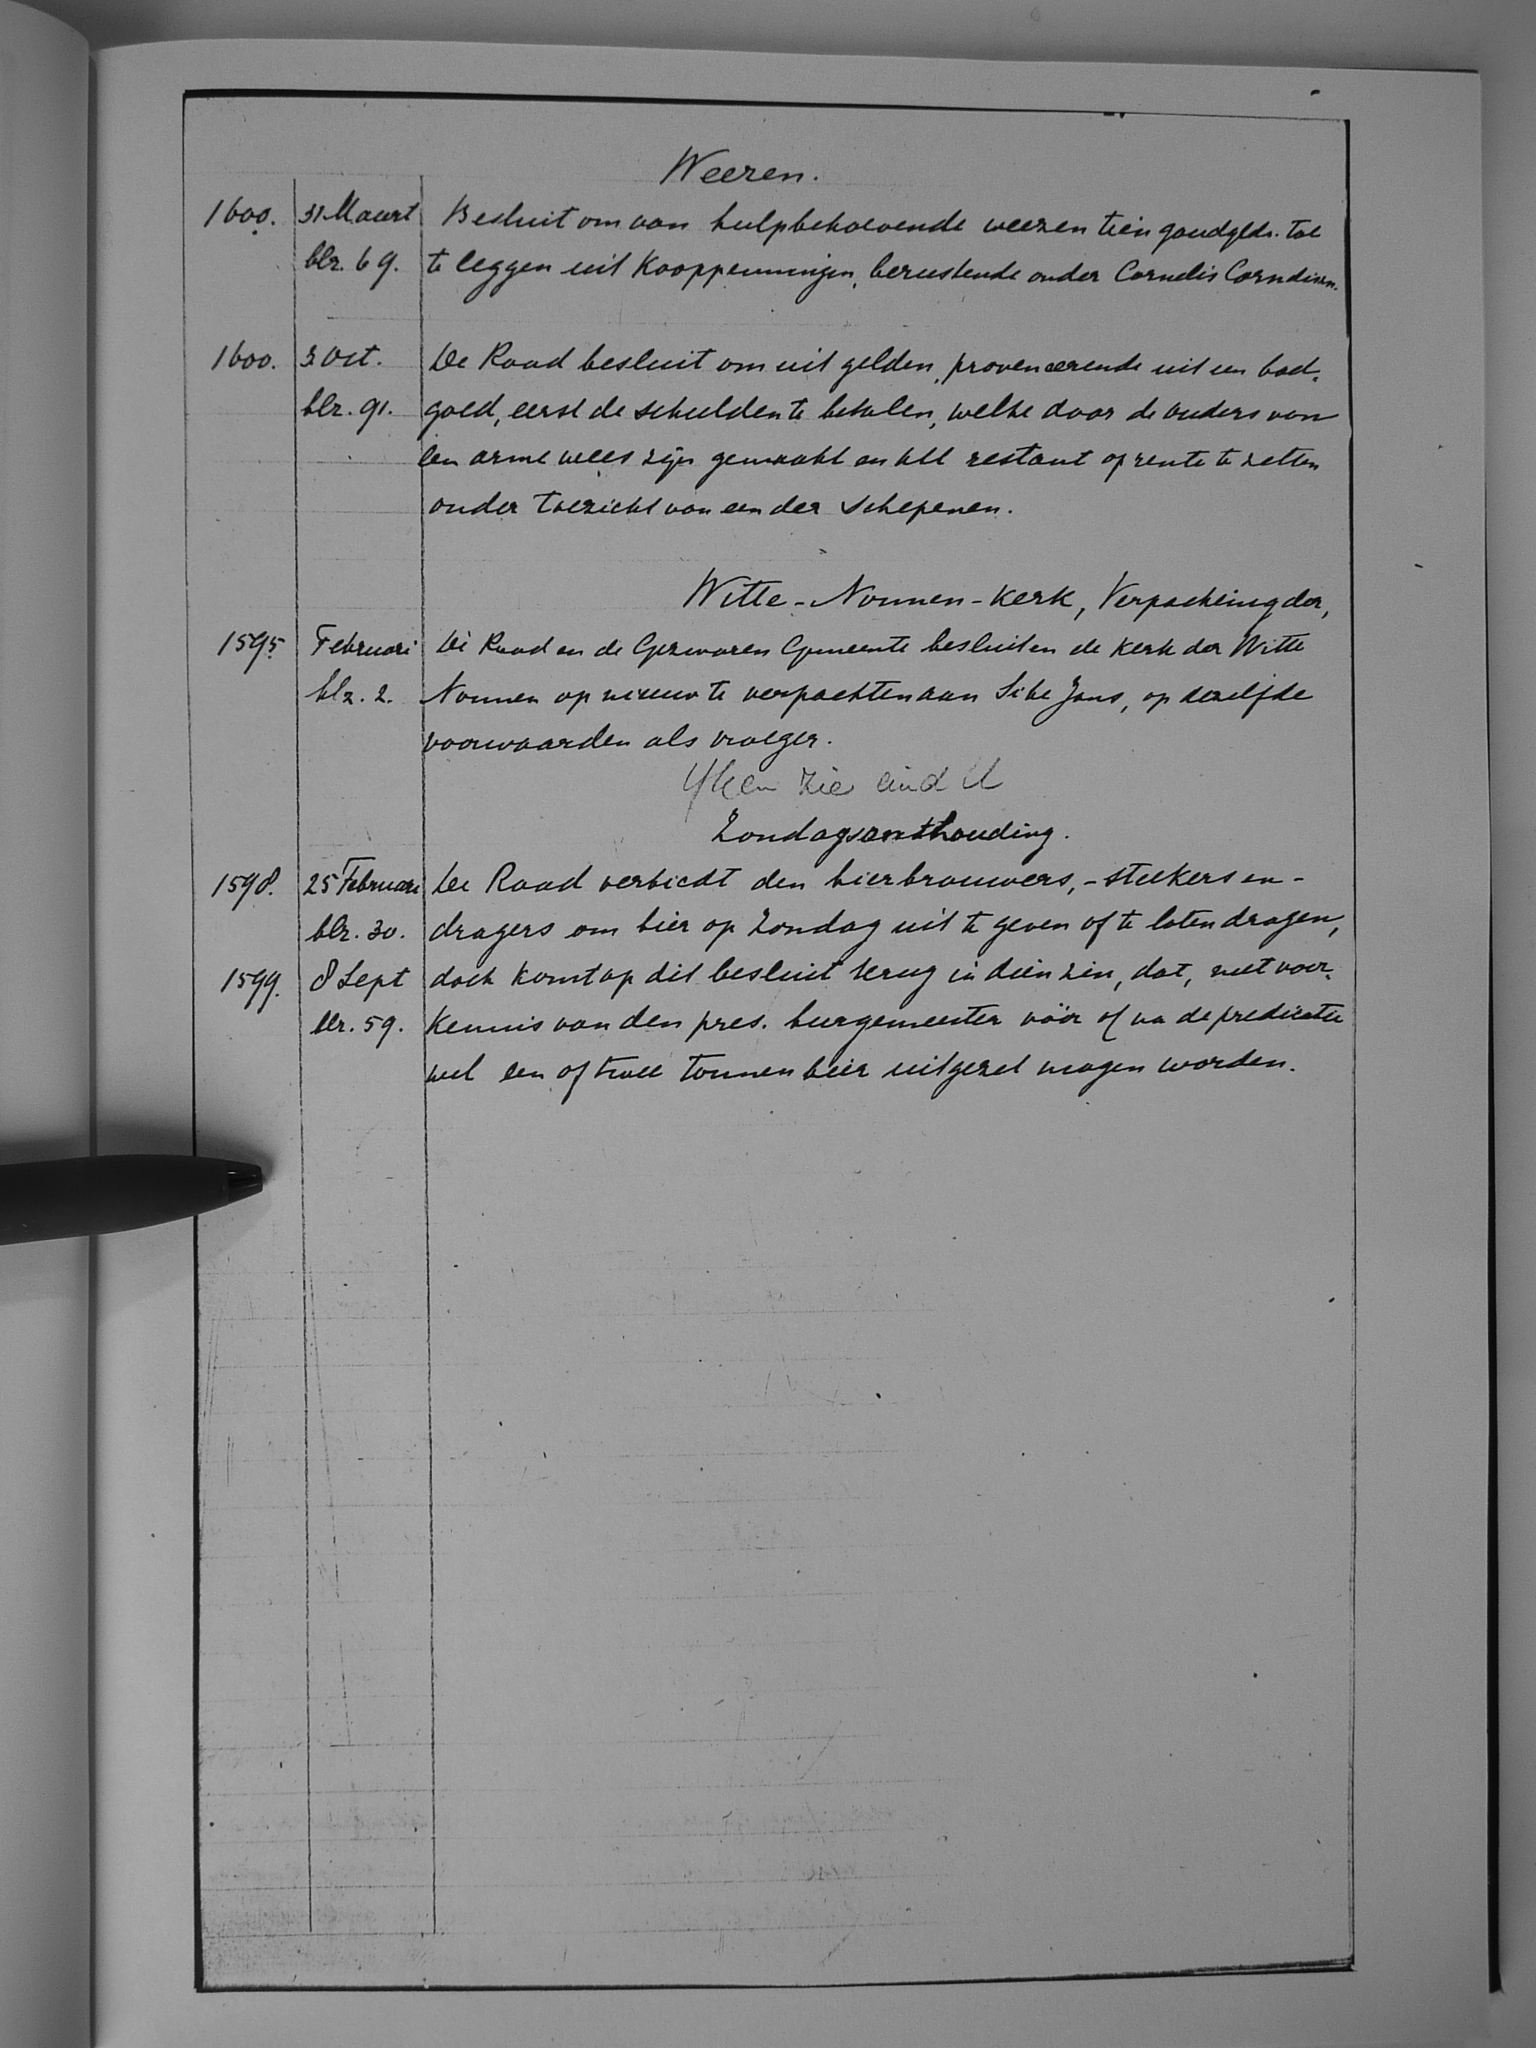 Weezen.
1600. 31 Maart Besluit om van hulpbehoevende weezen tien goudgldn. toe
blz. 69. te leggen uit Kooppenningen, berustende onder Cornelis Cornelissen.
1600. 2 Oct. De Raad besluit om uit gelden, provenieerende uit een bad-
blz. 91. goed, eerst de schulden te betalen, welke door de ouders van
een arme wees zijn gemaakt en het restant op rente te zetten
onder toezicht van een der Schepenen.
Witte-Nonnen-kerk, Verpachting der,
1595 Februari De Raad en de Gezworen Gemeente besluiten de kerk der Witte
blz. 2. Nonnen op nieuw te verpachten aan Sibe Jans, op dezelfde
voorwaarden als vroeger.
zie eind
Zondagsonthouding.
1598. 25 Februari De Raad verbiedt den bierbrouwers, -stekers en -
blz. 30. dragers om bier op Zondag uit te geven of te laten dragen,
1599. 8 Sept doch komt op dit besluit terug in dien zin, dat, met voor-
blz. 59. kennis van den pres. burgemeester vóór of na de predicatie
wel een of twee tonnen bier uitgezet mogen worden.